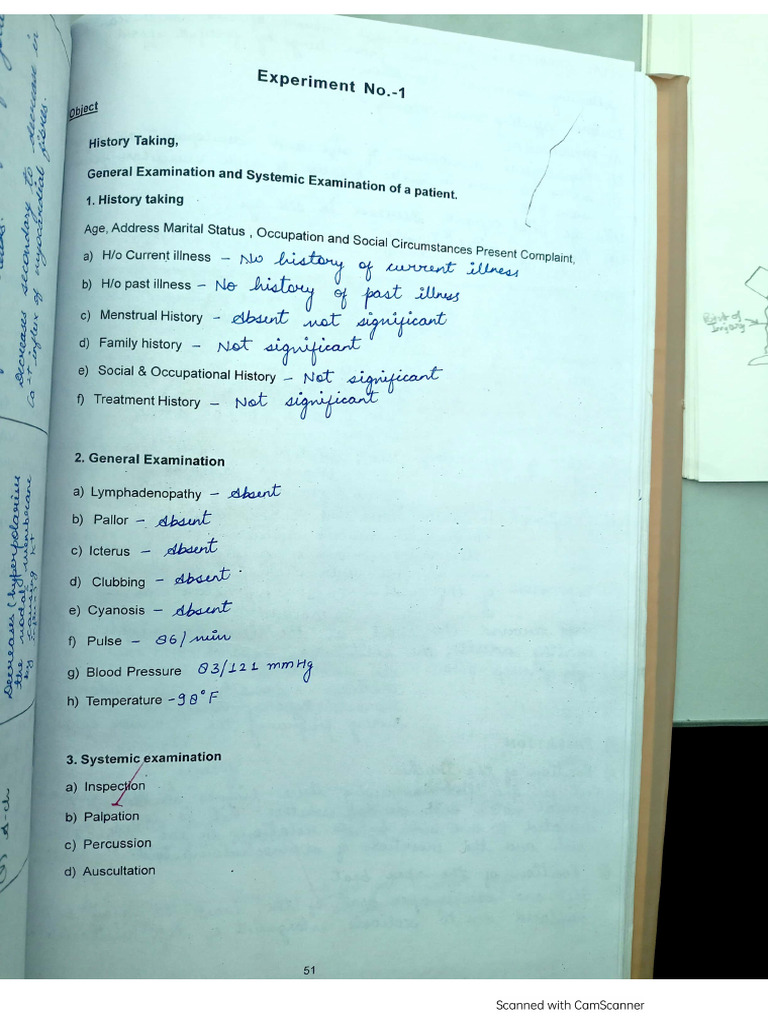 Experiment No.-1
Object
History Taking,
General Examination and Systemic Examination of a patient.
1. History taking
Age, Address Marital Status , Occupation and Social Circumstances Present Complaint,
a) H/o Current illness - No history of current illness
b) H/o past illness - No history of past illness
c) Menstrual History - Absent not significant
d) Family history - Not significant
e) Social & Occupational History - Not significant
f) Treatment History - Not significant
2. General Examination
a) Lymphadenopathy - Absent
b) Pallor - Absent
c) Icterus - Absent
d) Clubbing - Absent
e) Cyanosis - Absent
f) Pulse - 86/min
g) Blood Pressure 83/121 mmHg
h) Temperature - 98°F
3. Systemic examination
a) Inspection
b) Palpation
c) Percussion
d) Auscultation
51
Decreases secondary to decrease in
Ca2+ influx of myocardial fibres.
Decreases (hyperpolarise
the nodal membrane
by causing K+
Scanned with CamScanner